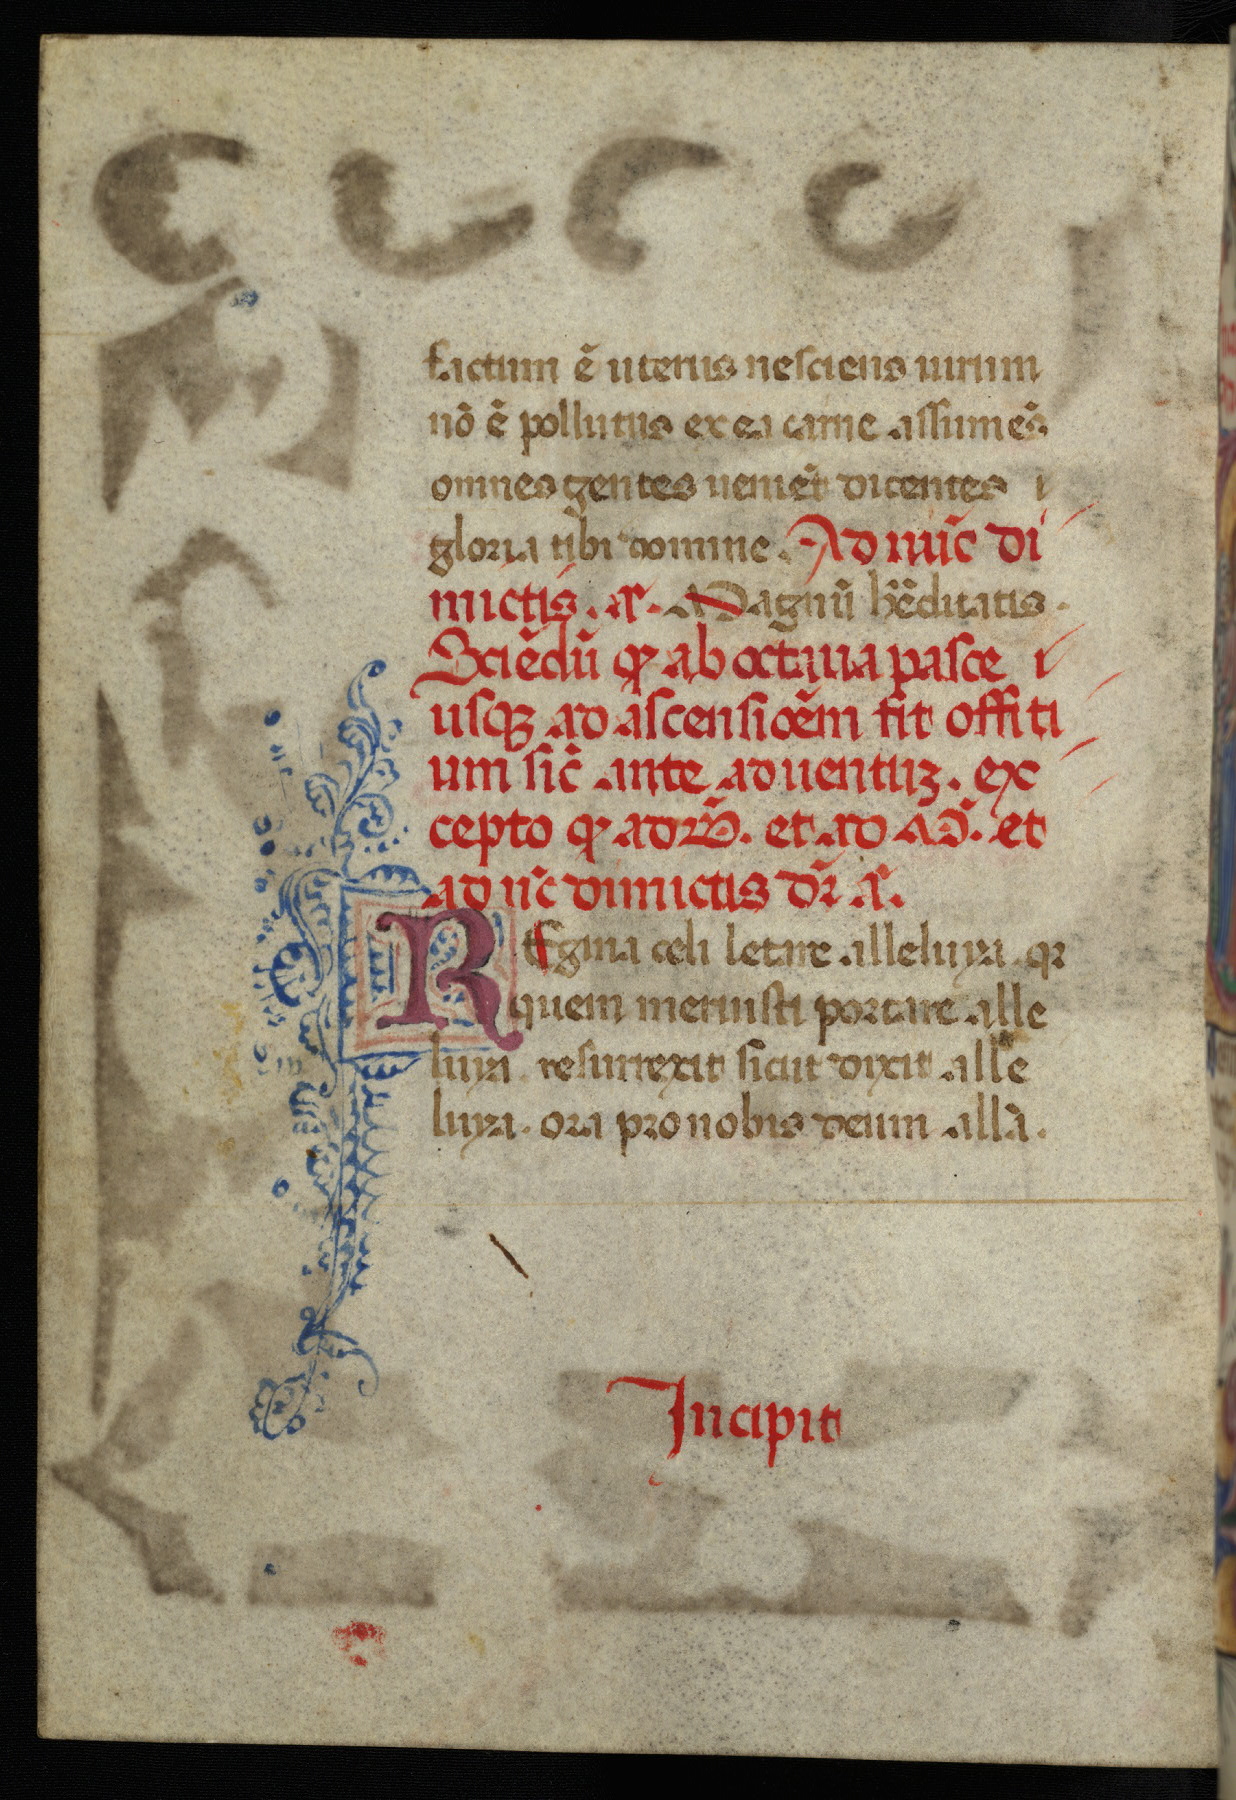 factum ē uterus nesciens uirum
nō ē pollutus ex ea carne assumēs
omnes gentes ueniēt dicentes
gloria tibi domine. Ad nūc di
mictis. añ. Magnū hēditatis.
Sciēdū qꝫ ab octaua pasce
usqꝫ ad ascensiōem fit offiti
um sic̄ ante aduentuꝫ. ex
cepto qꝫ ad bn̄. et ad m̄. et
ad nc̄ dimictis dr̄ añ.
REgina celi letare alleluya. qꝛ
quem meruisti portare alle
luya. resurrexit sicut dixit alle
luya. ora pro nobis deum allā.
Incipit